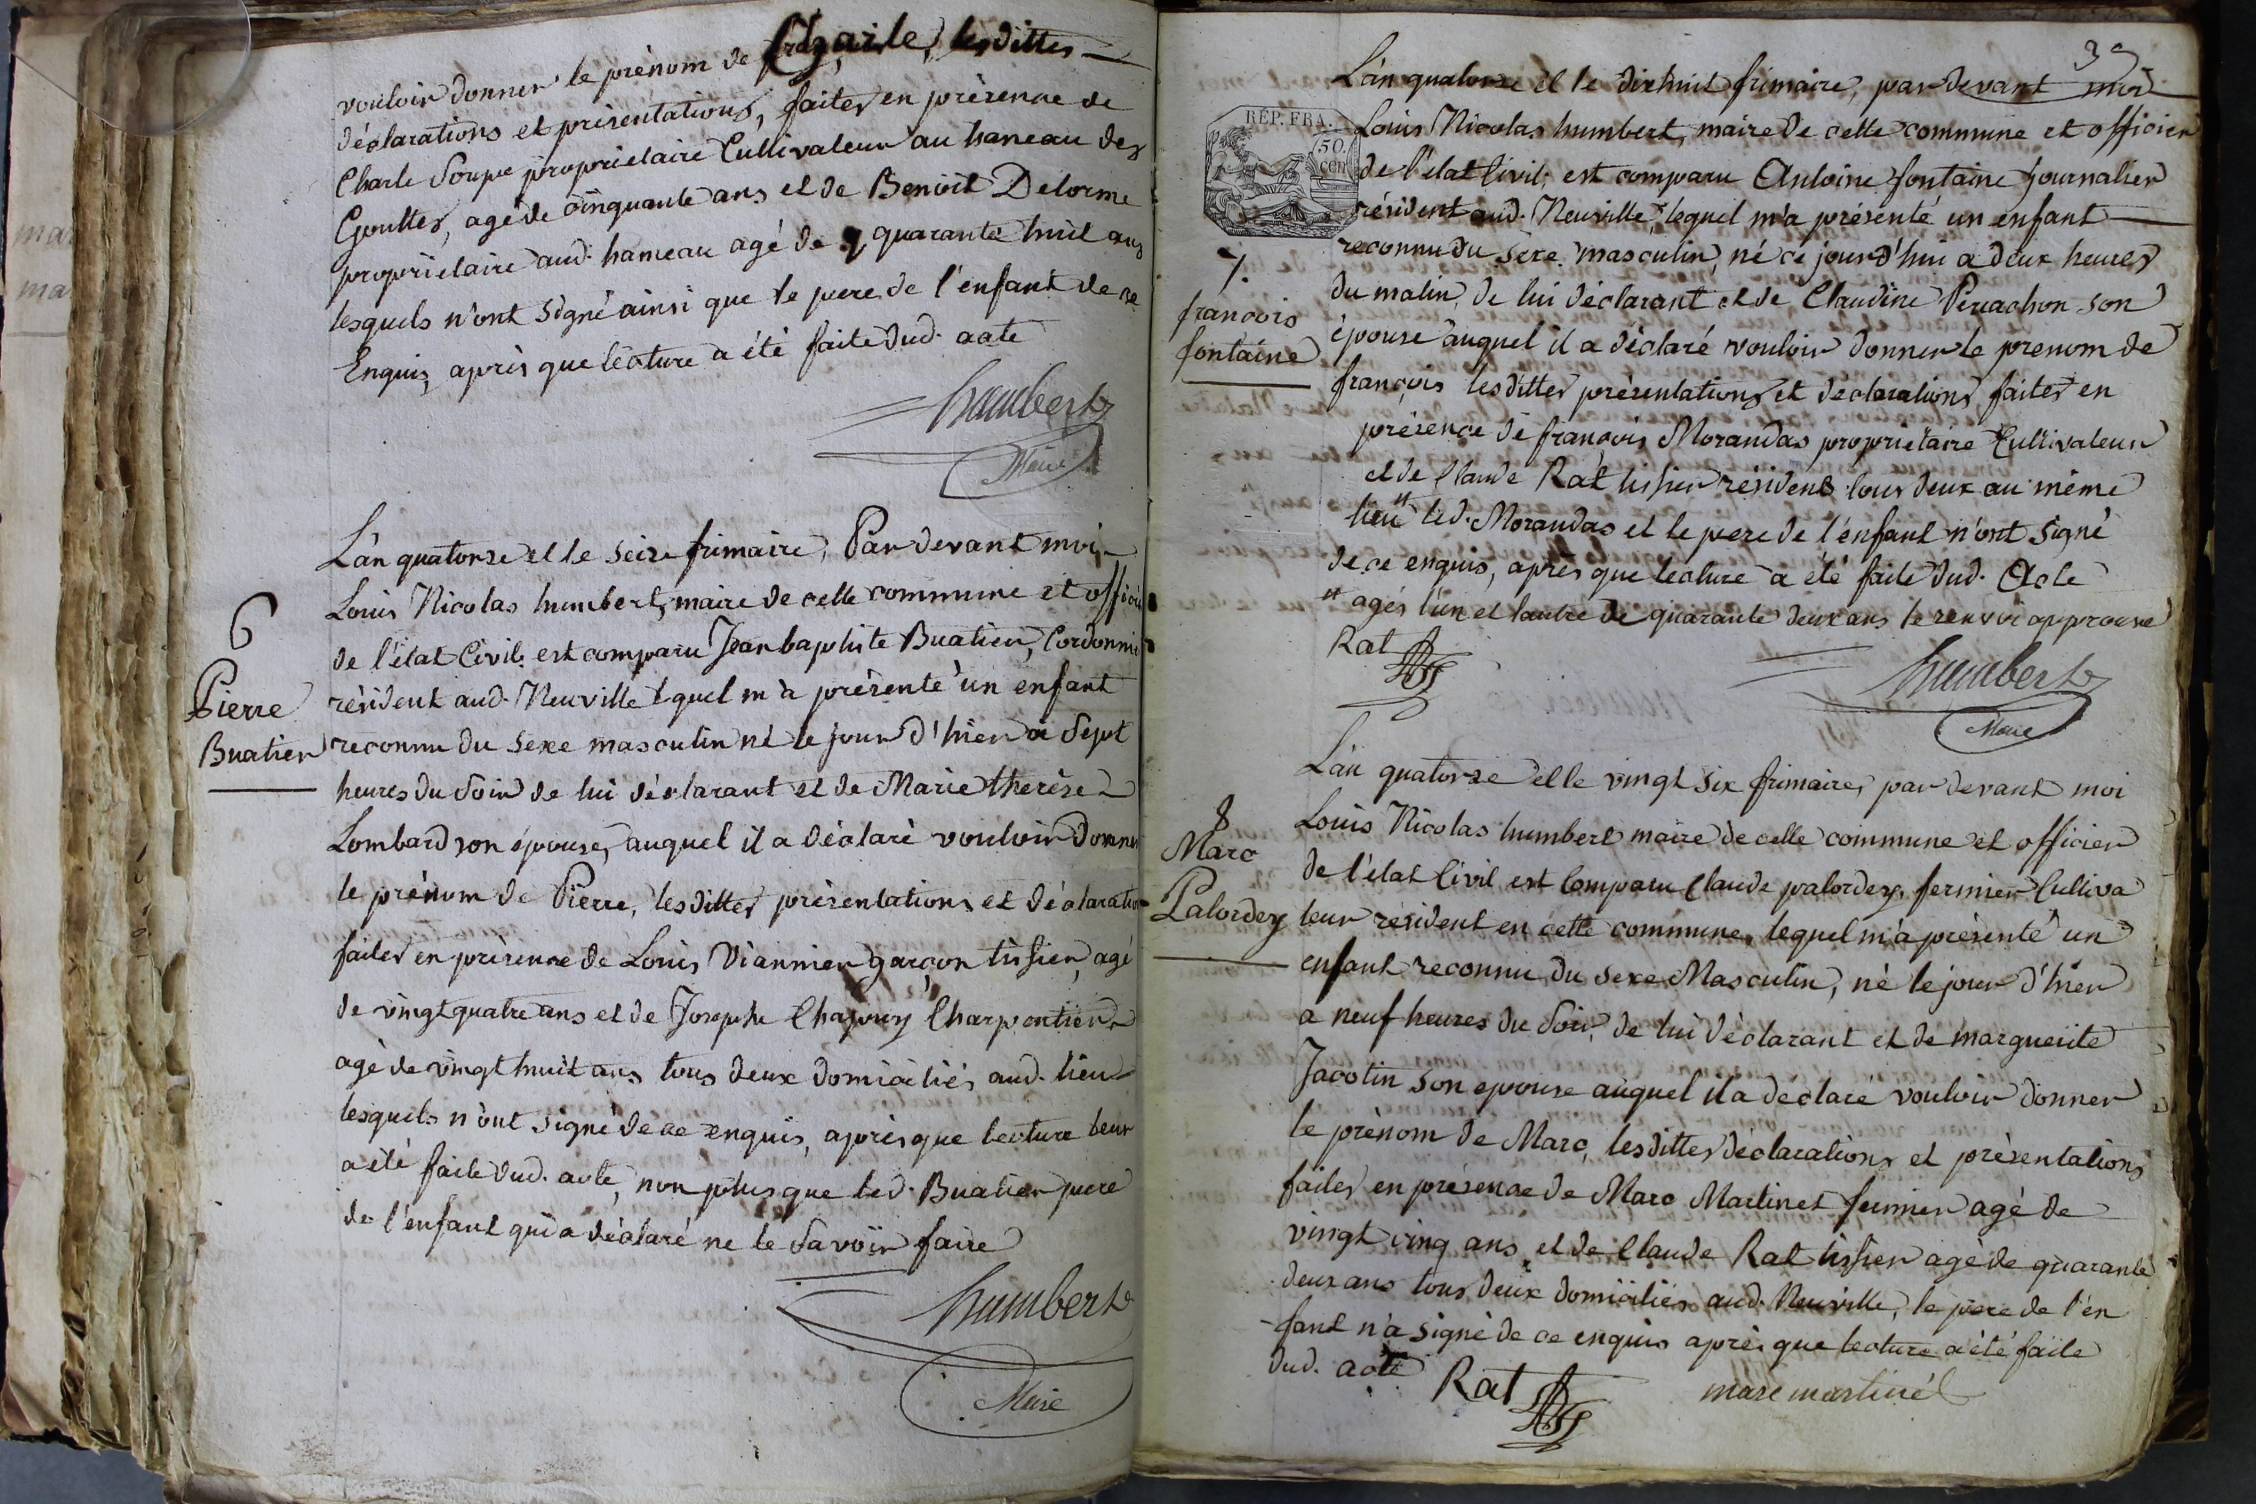 vouloir donner le prénom de Charle, lesdittes
déclarations et présentations, faites en présence de
Charle Soupe propriétaire Cultivateur au hameau des
Gouttes, agé de cinquante ans et de Benoit Delorme
propriétaire aud. hameau agé de quarante huit ans
lesquels n'ont signé ainsi que le pere de l'enfant de ce
Enquis, après que lecture a été faite dud. acte
humbert
Maire
L'an quatorze et le seize frimaire, Par devant moi
Louis Nicolas humbert, maire de cette commune et officier
de l'état Civil, est comparu Jean baptiste Buatier, Cordonnier
6
Pierre
Buatier
résident aud. Neuville lequel m'a présenté un enfant
reconnu du sexe masculin né le jour d'hier à Sept
heures du Soir de lui déclarant et de Marie therèse
Lombard son épouse, auquel il a déclaré vouloir donner
le prénom de Pierre, lesdittes présentations et déclaration
faites en présence de Louis Viannier garçon tissier, agé
de vingt quatre ans et de Joseph Chapuy Charpentier
agé de vingt huit ans tous deux domiciliés aud. lieu
lesquels n'ont signé de ce enquis, après que lecture leur
a été faite dud. acte, non plus que led. Buatier pere
de l'enfant qui a déclaré ne le Savoir faire
humbert
Maire
L'an quatorze et le dixhuit frimaire, par devant moi
RÉP. FRA.
50
cen
Louis Nicolas humbert, maire de cette commune et officier
de l'état Civil, est comparu Antoine fontaine journalier
résident aud. Neuville, lequel m'a présenté un enfant
reconnu du Sexe masculin, né ce jourd'hui a deux heures
7.
françois
fontaine
du matin, de lui déclarant et de Claudine Perrachon son
épouse auquel il a déclaré vouloir donner le prenom de
françois lesdittes présentations et déclarations faites en
présence de françois Morandas propriétaire Cultivateur
et de Claude Rat tissier résidens tous deux au même
lieu led. Morandas et le pere de l'enfant n'ont Signé
de ce enquis, après que lecture a été faite dud. Acte
agés l'un et l'autre de quarante deux ans le renvoi approuvé
Rat
humbert
Maire
L'an quatorze et le vingt six frimaire, par devant moi
Louis Nicolas humbert maire de cette commune et officier
de l'état Civil est Comparu Claude palordey, fermier Cultiva
8
Marc
Palordey
teur résident en cette commune, lequel m'a présenté un
enfant reconnu du Sexe Masculin, né le jour d'hier
a neuf heures du Soir, de lui déclarant et de marguerite
Jacotin son epouse auquel il a déclaré vouloir donner
le prénom de Marc, lesdittes déclarations et présentations
faites en présence de Marc Martinet fermier agé de
vingt cinq ans, et de Claude Rat tissier agé de quarante
deux ans tous deux domiciliés aud. Neuville, le pere de l'en
fant n'a signé de ce enquis après que lecture a été faite
dud. acte
Rat
marc martinet